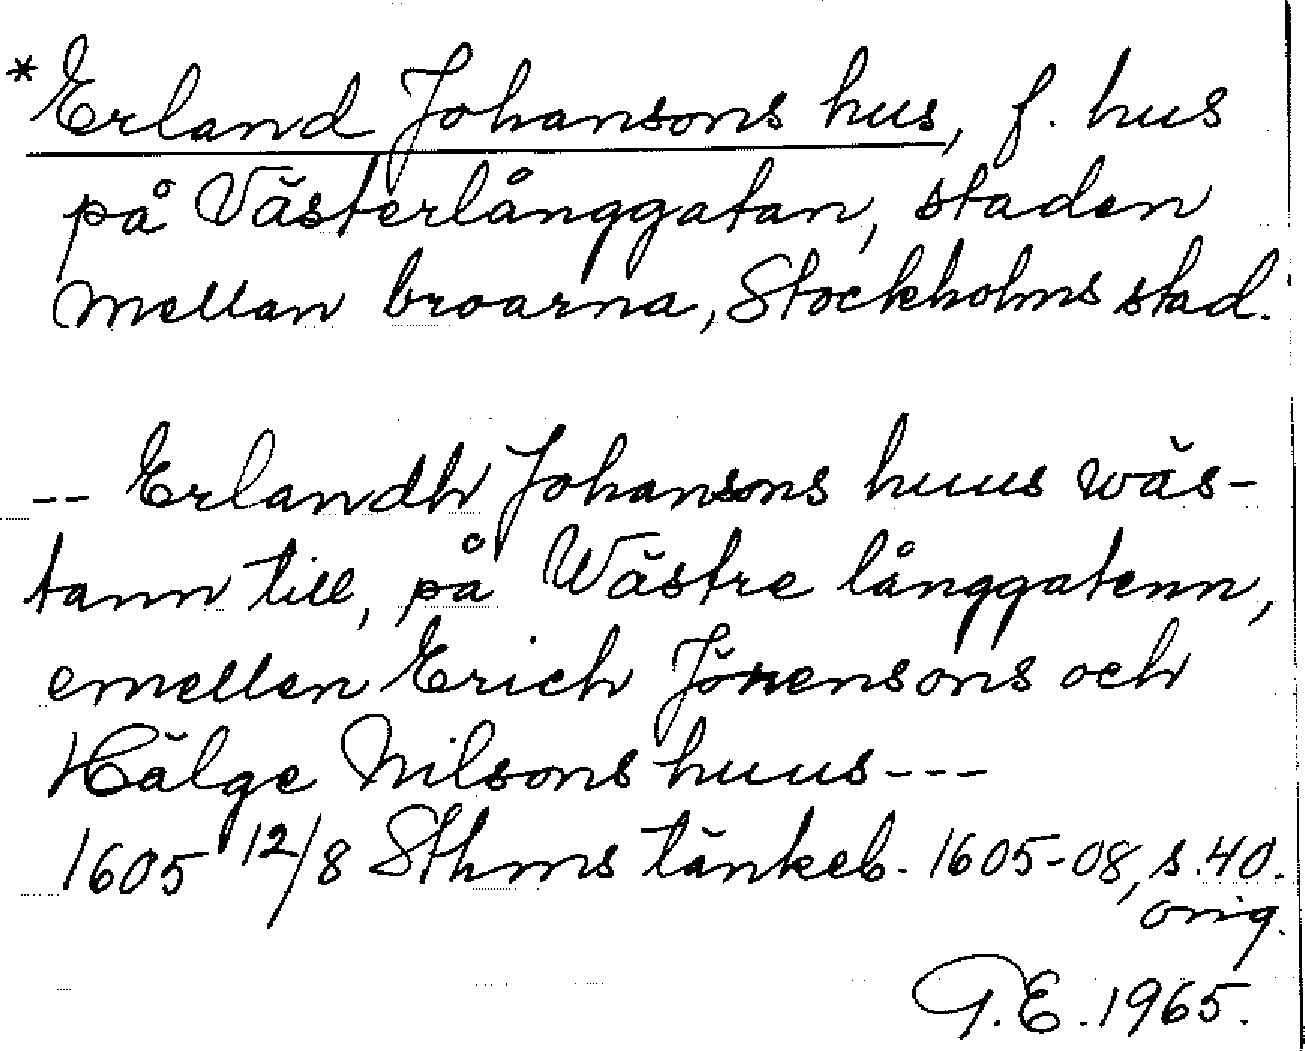 *Erland Johansons hus, f. hus
på Västerlånggatan, staden
mellan broarna, Stockholms stad.
-- Erlandh Johansons huus wäs-
tann till, på Wästre långgatenn,
emellen Erich Jönensons och
Hälge Nilsons huus---
1605 12/8 Sthms tänkeb. 1605-08, s.40.
orig.
G.E. 1965.